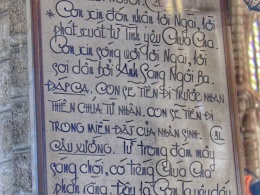 * Con xin đón nhận lời Ngài, lời
phát xuất từ tình yêu Chúa Cha.
Con xin sống với lời Ngài, lời
soi dẫn bởi Ánh Sáng Ngôi Ba.
ĐÁP CA. CON SẼ TIẾN ĐI TRƯỚC NHAN
THIÊN CHÚA TỪ NHÂN. CON SẼ TIẾN ĐI
TRONG MIỀN ĐẤT CỦA NHÂN SINH.
CÂU XƯỚNG. Từ trong đám mây
sáng chói, có tiếng Chúa Cha
phán rằng. Đây là Con